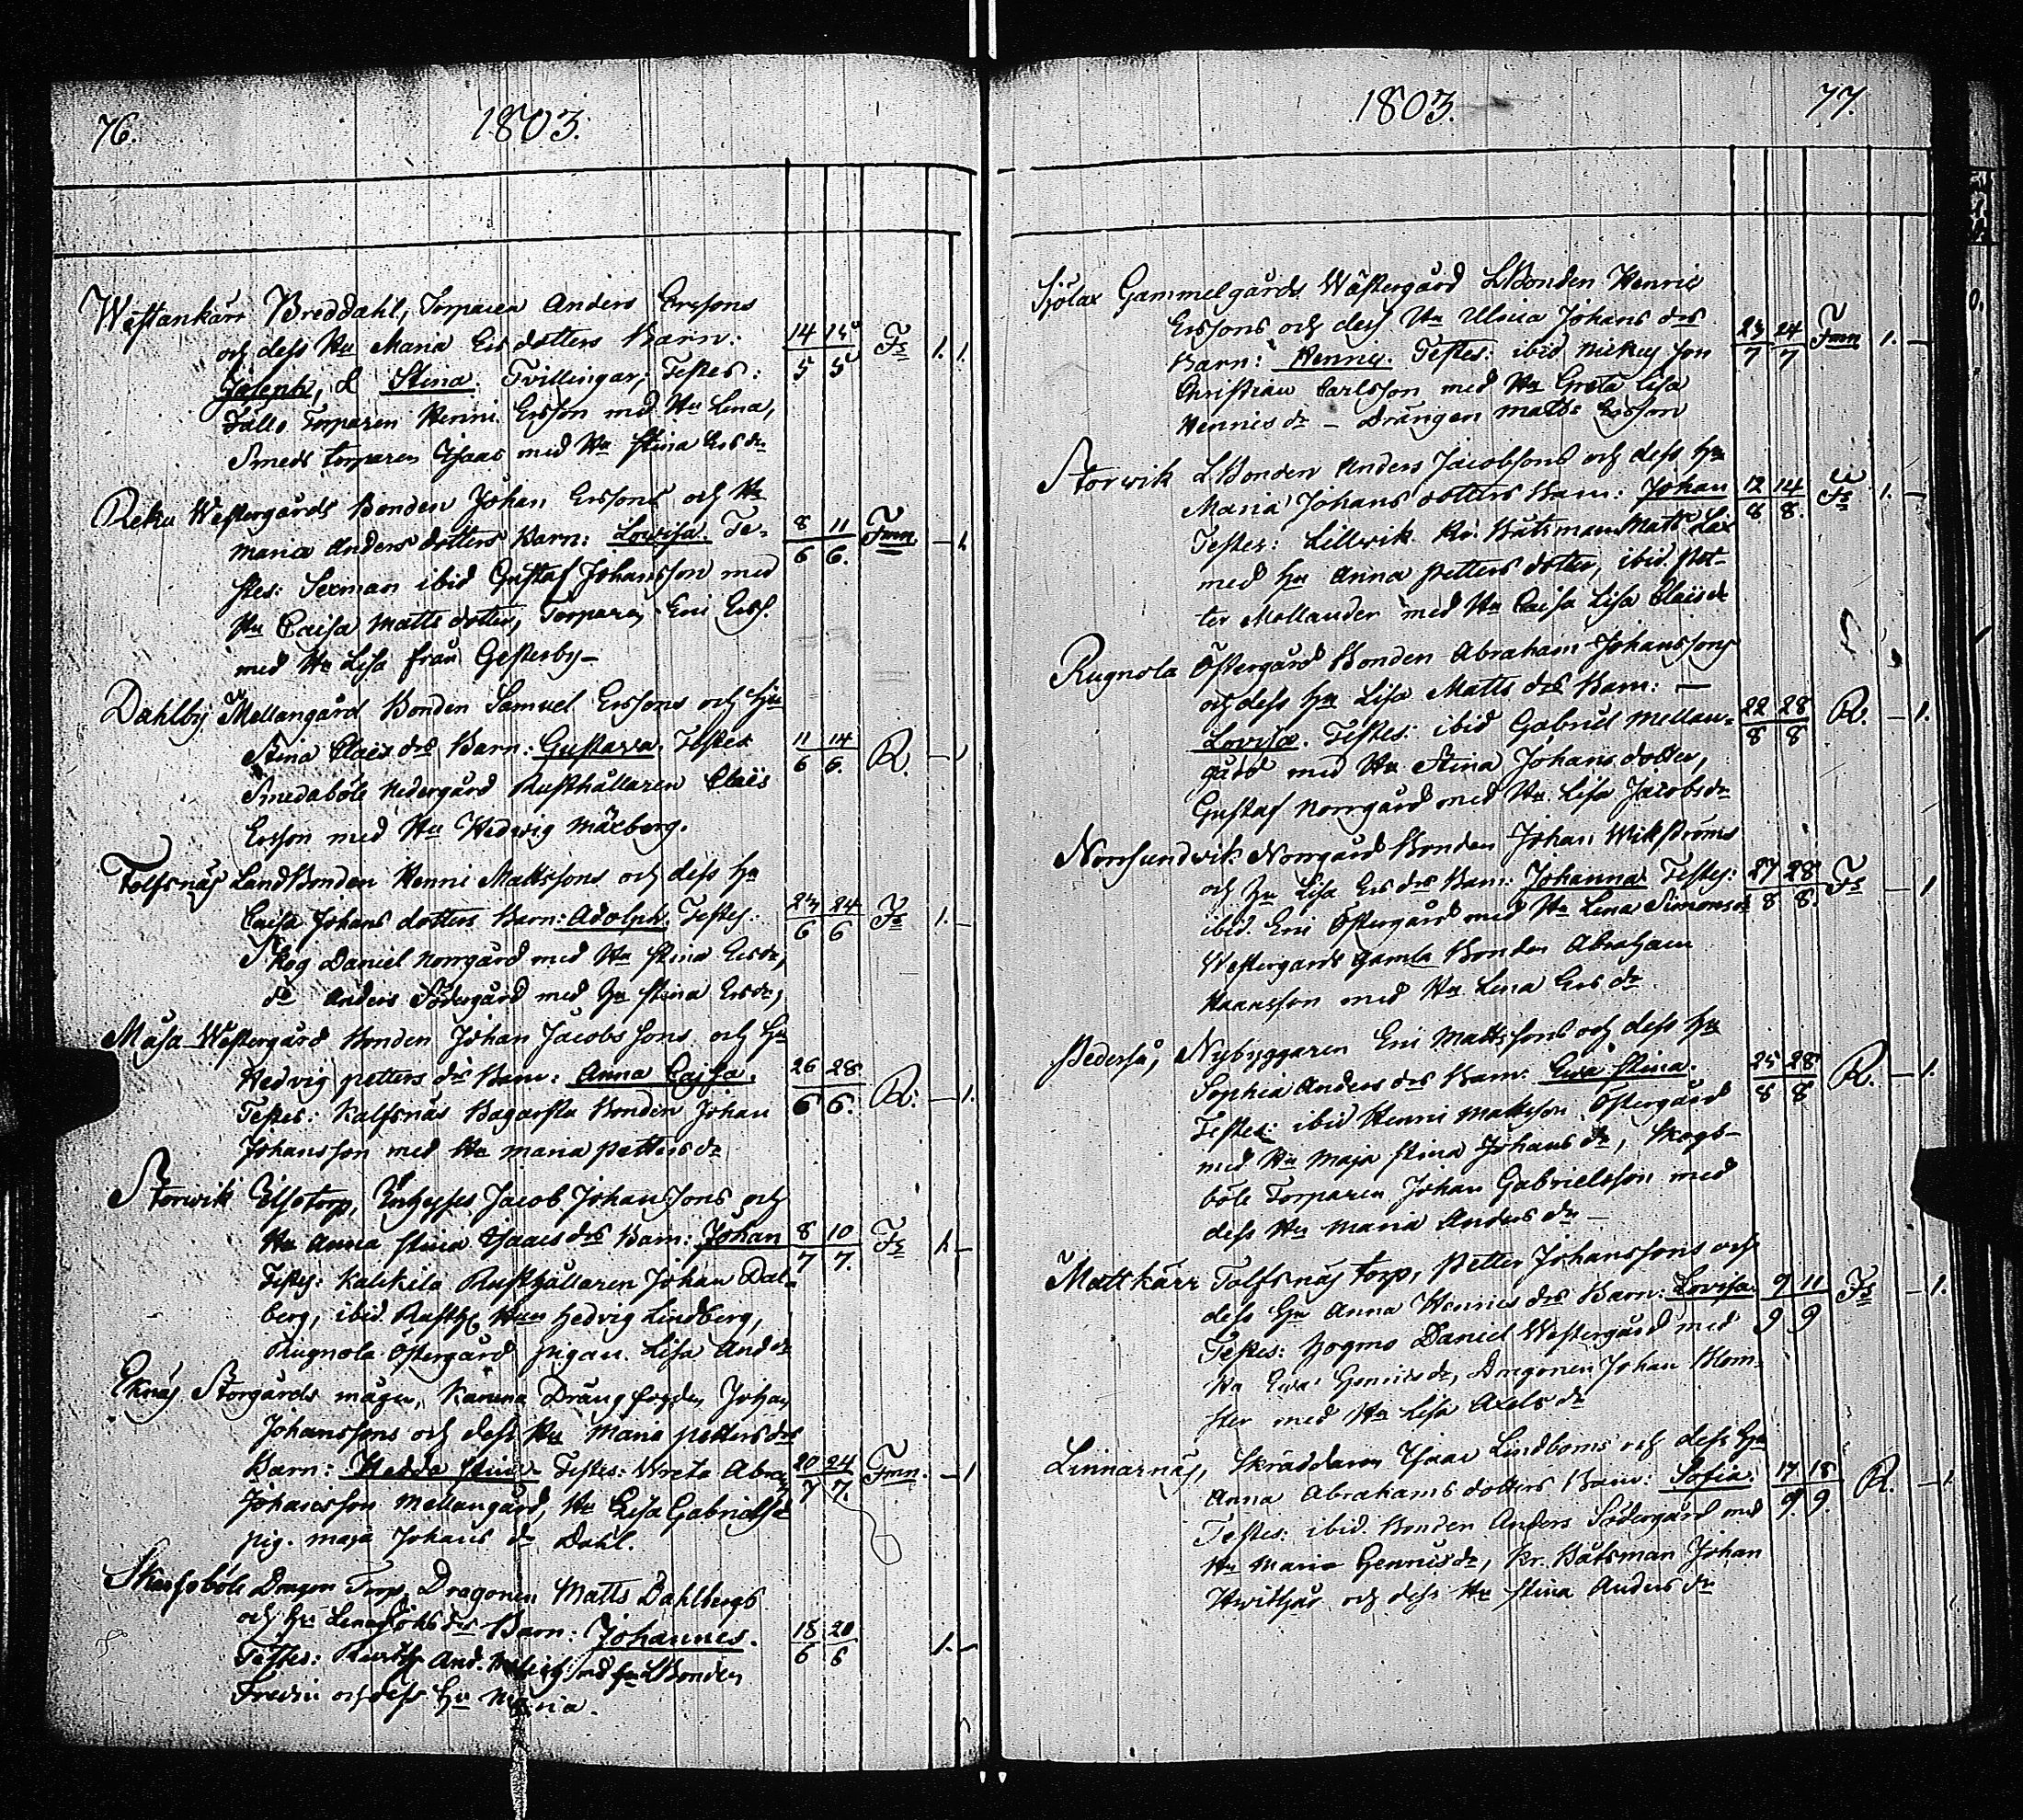 76. 1803.
Westankärr Breddahl, Torparen Anders Erssons
och dess Hu Maria Ersdotters Barn: 14/5 15/5 Fs 1. 1.
Joseph, & Stina. Tvillingar; Testes:
Fälls Torparen Henric Ersson med Hu Lena,
Smeds torparen Isaac med Hu Stina Ersdr
Reku Westergårds Bonden Johan Erssons och Hu
Maria Anders dotters Barn: Lovisa. Te- 8/6 11/6. Fmn — 1.
stes: Sexman ibid Gustaf Johansson med
Hu Caisa Matts dotter, Torparen Eric Erss.
med Hu Lisa från Gesterby—
Dahlby Mellangård Bonden Samuel Erssons och Hu
Stina Claes drs Barn: Gustava. Testes 11/6 14/6. R. — 1
Smedaböle Nedergård Rusthållaren Claës
Ersson med Hu Hedvig Märberg.
Tolfsnäs LandBonden Henric Mattssons och dess Hu
Caisa Johans dotters Barn: Adolph. Testes: 23/6 24/6 Fs 1. —
Skog Daniel Norrgård med Hu Stina Ersdr,
do Anders Södergård med Hu Stina Ersdr,
Måsa Westergård Bonden Johan Jacobssons och Hu
Hedvig Petters drs Barn: Anna Cajsa. 26/6 28/6. R. — 1.
Testes: Kalfsnäs Bagarsta Bonden Johan
Johansson med Hu Maria Pettersdr
Storwik Elsetorp, Inhyses Jacob Johanssons och
Hu Anna Stina Isaacs drs Barn: Johan 8/7 10/7. Fs 1. —
Testes: Kalckila Rusthållaren Johan Dal-
berg, ibid. Rusth. Hun Hedvig Lindberg,
Rugnola Östergård pigan Lisa And.dr
Eknäs Storgårds Drängfogden Johan
Johanssons och dess Hu Maria Petters drs
Barn: Hedda Stina. Testes: Wreta Abra 20/7 24/7. Fmn. — 1
Johansson Mellangård, Hu Lisa Gabrielsdr
pig. Maja Johans dr Dahl.
Dragon Torp, Dragonen Matts Dahlbergs
och Hu Lena Joh. drs Barn: Johannes. 18/6 20/6 1. —
Testes: Rusth. And. med Hu LBonden
Fredric och dess Hu Maria.
1803. 77.
Sjölax Gammelgårds Wästergård LBonden Henric
Erssons och dess Hu Ulrica Johans drs
Barn: Henric. Testes: ibid Rickus son 23/7 24/7 Fmn 1. —
Christian Carlsson med Hu Greta Lisa
Henricsdr — Drängen Matts Ersson
Storwik LBonden Anders Jacobssons och dess Hu
Maria Johans dotters Barn: Johan 12/8 14/8. Fs 1. —
Testes: Lillwik Kr. Båtsman Matts Lax
med Hu Anna Petters dotter, ibid. Pet-
ter Mellander med Hu Caisa Lisa Claësdr
Rugnola Östergård Bonden Abraham Johanssons
och dess Hu Lisa Matts drs Barn: —
Lovisa. Testes: ibid Gabriel Mellan- 22/8 28/8 R. — 1.
gård med Hu Stina Johans dotter,
Gustaf Norrgård med Hu Lisa Jacobsdr
Norrsundvik Norrgård Bonden Johan Wikströms
och Hu Lisa Ers drs Barn: Johanna Testes: 27/8 28/8. Fs — 1
ibid. Eric Östergård med Hu Lena Simonsdr
Westergårds Gamla Bonden Abraham
Hansson med Hu Lena Ers dr
Pederså, Nybyggaren Eric Mattssons och dess Hu
Sophia Anders drs Barn: Ewa Stina. 25/8 28/8 R. — 1.
Testes: ibid Henric Mattsson Östergård
med Hu Maja Stina Johans dr, Skogs-
böle Torparen Johan Gabrielsson med
dess Hu Maria Anders dr —
Mattkärr Tolfsnäs torp, Petter Johanssons och
dess Hu Anna Henrics drs Barn: Lovisa. 9/9 11/9 Fs — 1.
Testes: Hogmo Daniel Westergård med
Hu Ewa Henricsdr, Dragonen Johan Blom-
ster med Hu Lisa Axels dr
Linnarnäs, Skräddaren Isaac Lindboms och dess Hu
Anna Abrahams dotters Barn: Sofia. 17/9. 18/9. R. — 1.
Testes: ibid. Bonden Anders Södergård med
Hu Maria Henricsdr, Kr. Båtsman Johan
Hwitkär och dess Hu Stina Anders dr